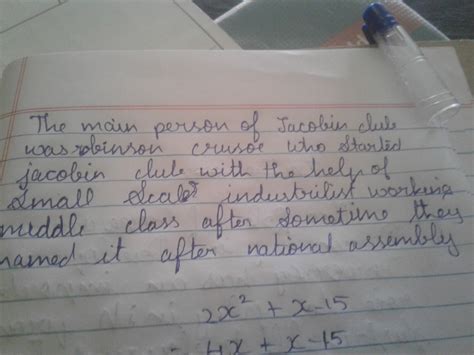 The main person of Jacobin club
was robinson crusoe who started
jacobin club with the help of
small scale industrilist working
middle class after sometime they
named it after national assembly
2x² + x - 15
- 4x + x - 15